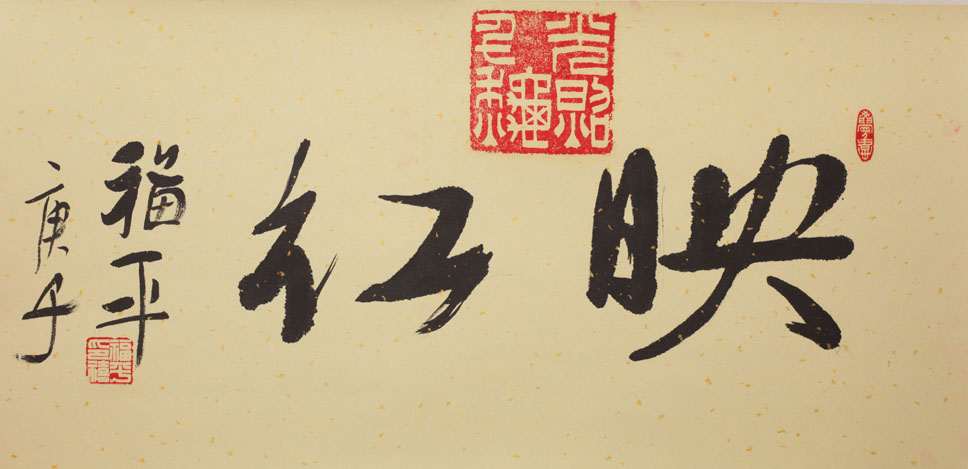 映红
福平
庚子